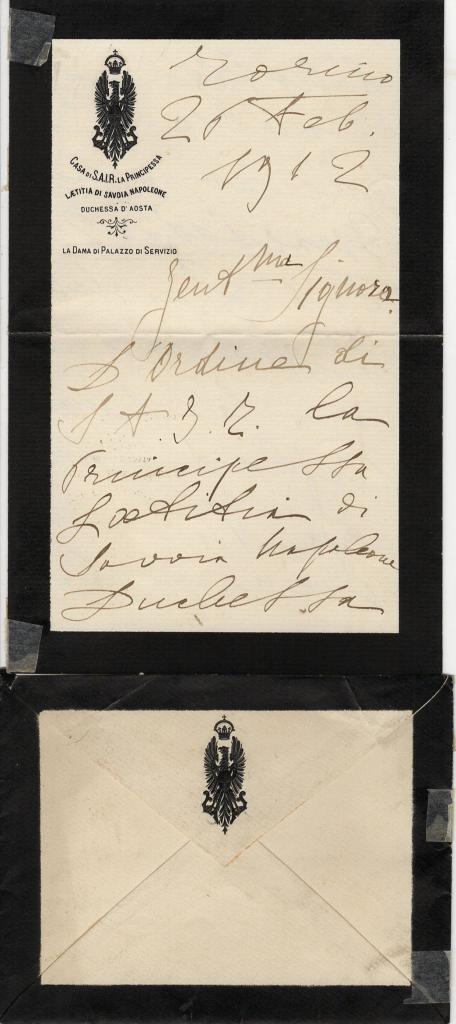 CASA DI S.A.I.R. LA PRINCIPESSA
LÆTITIA DI SAVOIA NAPOLEONE
DUCHESSA D'AOSTA
LA DAMA DI PALAZZO DI SERVIZIO
Torino
26 Feb.
1912
Gent.ma Signora.
D'Ordine di
S. A. I. R. la
Principessa
Lætitia di
Savoia Napoleone
Duchessa